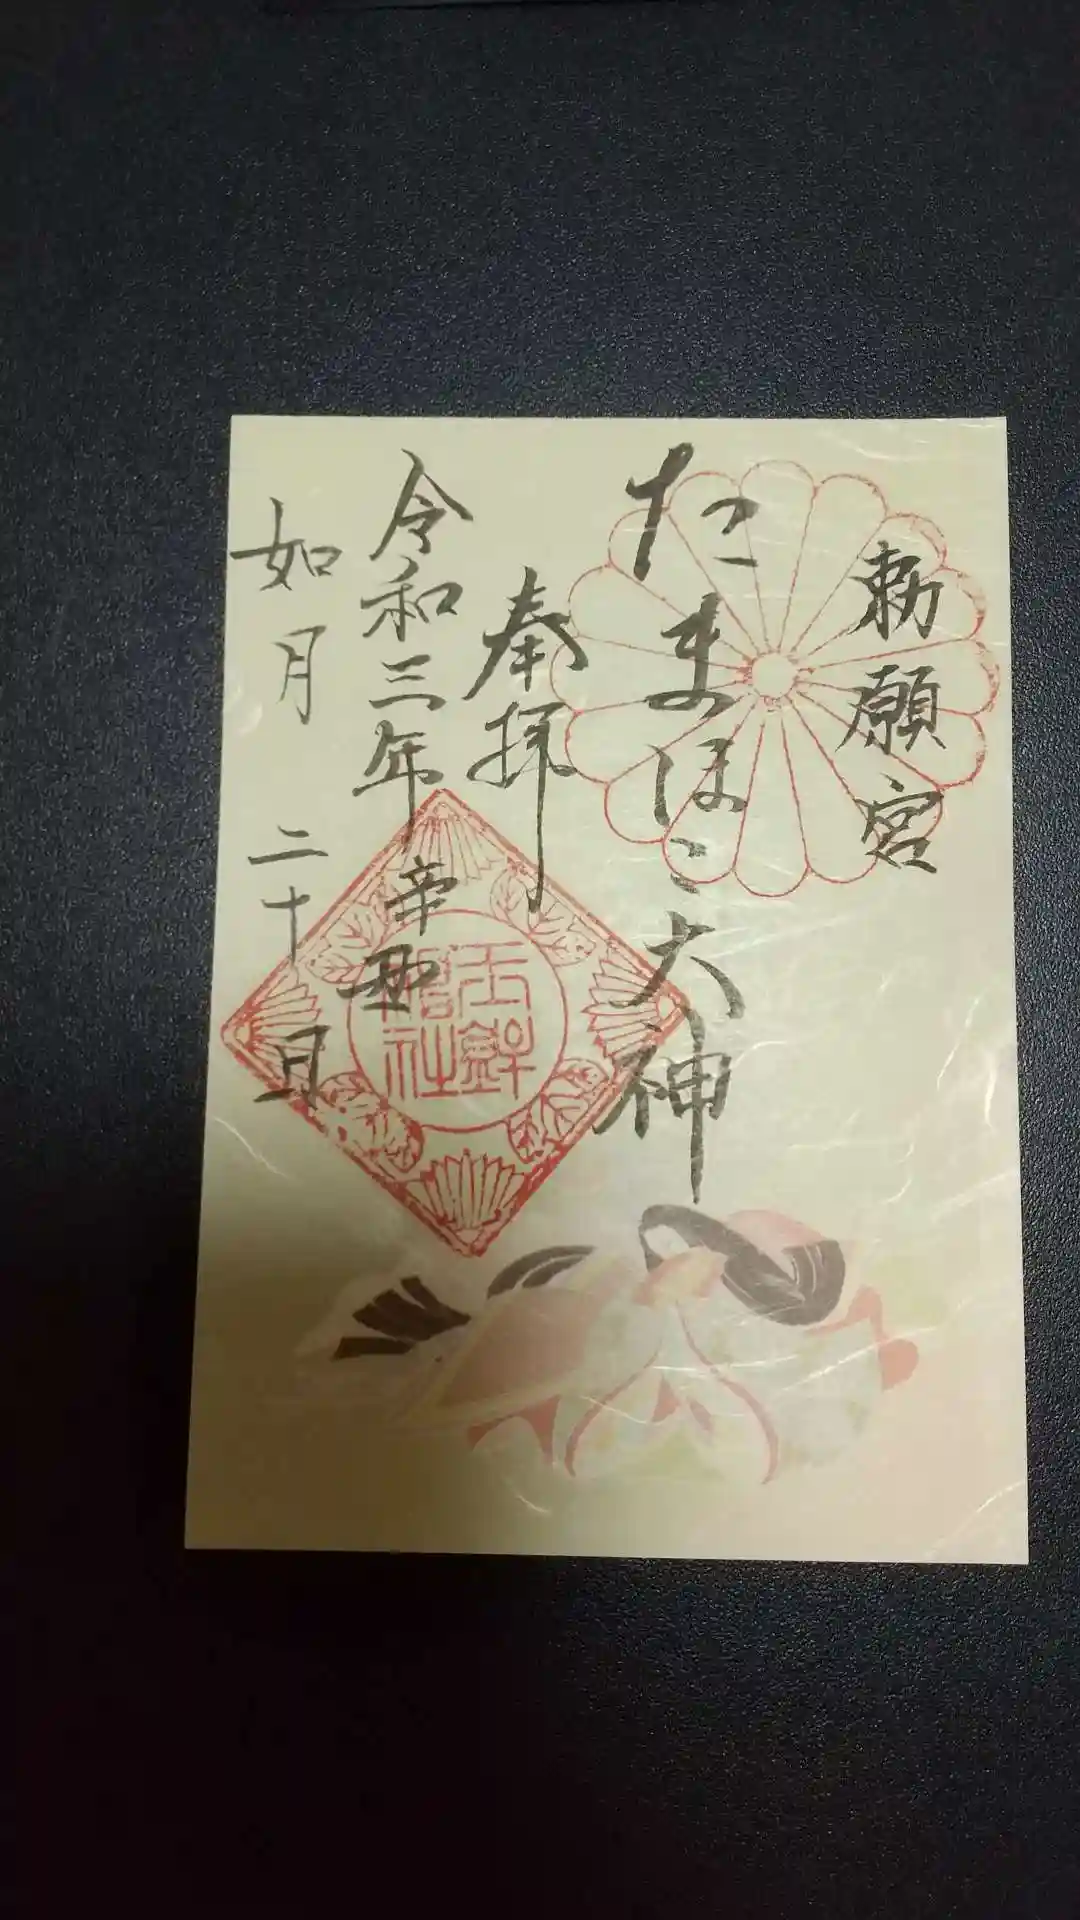 勅願宮
たまほこ大神
奉拝
令和三年辛丑
如月二十日
玉鉾
社